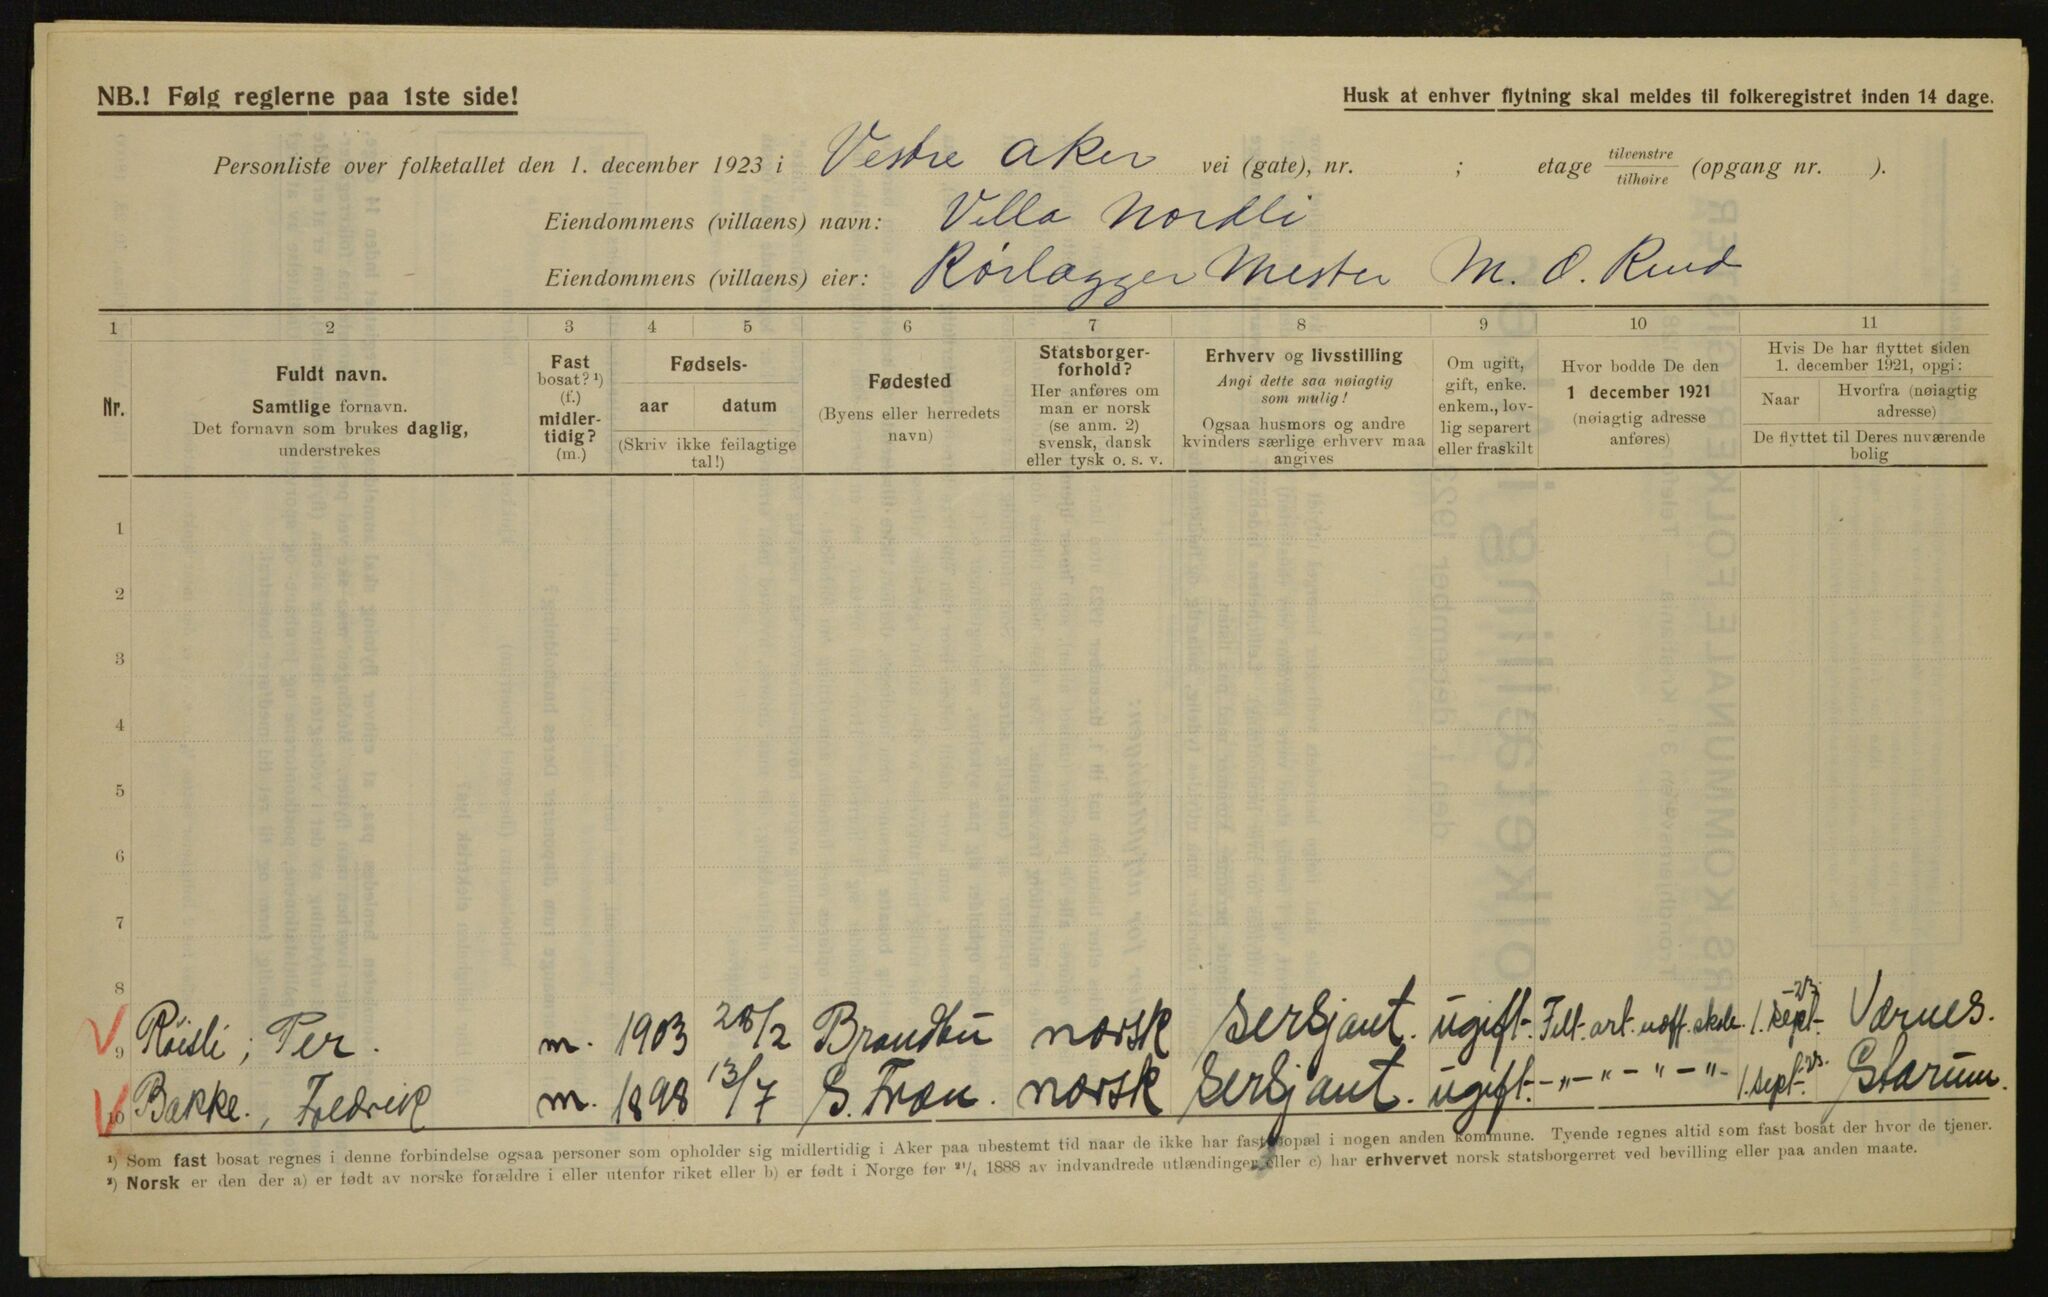 NB.! Følg reglerne paa 1ste side!
Husk at enhver flytning skal meldes til folkeregistret inden 14 dage.
Personliste over folketallet den 1. december 1923 i Vestre Aker vei (gate), nr. ; etage tilvenstre/tilhøire (opgang nr. ).
Eiendommens (villaens) navn: Villa Nordli
Eiendommens (villaens) eier: Rörlægger Mester M. O. Ruud
1 2 3 4 5 6 7 8 9 10 11
Nr.
Fuldt navn.
Samtlige fornavn.
Det fornavn som brukes daglig,
understrekes
Fast
bosat? ¹)
(f.)
midler-
tidig?
(m.)
Fødsels-
aar datum
(Skriv ikke feilagtige
tal!)
Fødested
(Byens eller herredets
navn)
Statsborger-
forhold?
Her anføres om
man er norsk
(se anm. 2)
svensk, dansk
eller tysk o. s. v.
Erhverv og livsstilling
Angi dette saa nøiagtig
som mulig!
Ogsaa husmors og andre
kvinders særlige erhverv maa
angives
Om ugift,
gift, enke.
enkem., lov-
lig separert
eller fraskilt
Hvor bodde De den
1 december 1921
(nøiagtig adresse
anføres)
Hvis De har flyttet siden
1. december 1921, opgi:
Naar
Hvorfra (nøiagtig
adresse)
De flyttet til Deres nuværende
bolig
1
2
3
4
5
6
7
8
9 Røisli, Per. m. 1903 28/2 Brandbu norsk Sersjant. ugift. Felt-art. uoff. skole. 1. sept. -23. Værnes.
10 Bakke, Fredrik m. 1898 13/7 S. Fron. norsk Sersjant. ugift. -"-"-"-"- 1. sept. -23. Starum.
¹) Som fast bosat regnes i denne forbindelse ogsaa personer som opholder sig midlertidig i Aker paa ubestemt tid naar de ikke har fast bopæl i nogen anden kommune. Tyende regnes altid som fast bosat der hvor de tjener.
²) Norsk er den der a) er født av norske forældre i eller utenfor riket eller b) er født i Norge før ²¹/₄ 1888 av indvandrede utlændinger eller c) har erhvervet norsk statsborgerret ved bevilling eller paa anden maate.